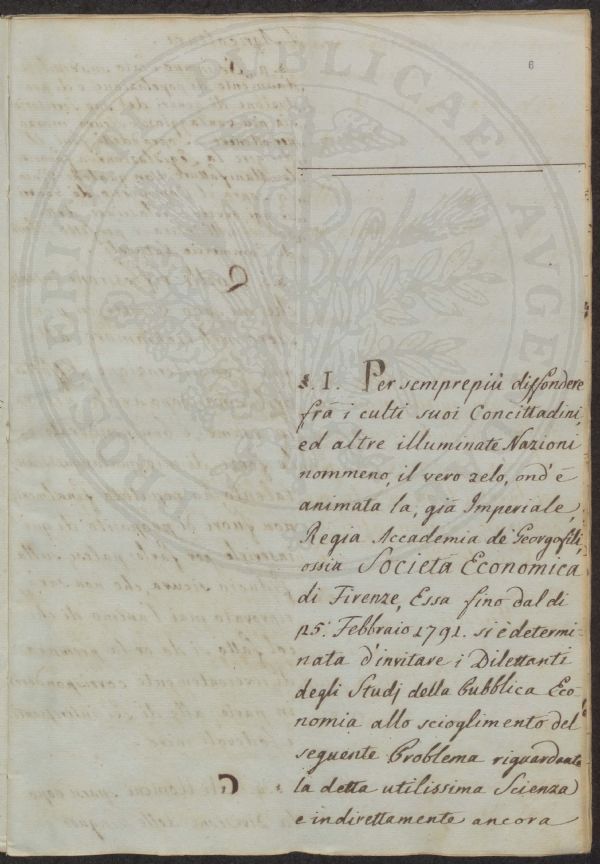 6
§. I. Per semprepiù diffondere
frà i culti suoi Concittadini,
ed altre illuminate Nazioni
nommeno, il vero zelo, ond'è
animata la, già Imperiale,
Regia Accademia de' Georgofili,
ossia Società Economica
di Firenze, Essa fino dal dì
25. Febbraio 1791. si è determi-
nata d'invitare i Dilettanti
degli Studj della Pubblica Eco-
nomia allo scioglimento del
seguente Problema riguardante
la detta utilissima Scienza
e indirettamente ancora
PROSPERITATI PUBLICAE AUGENDAE